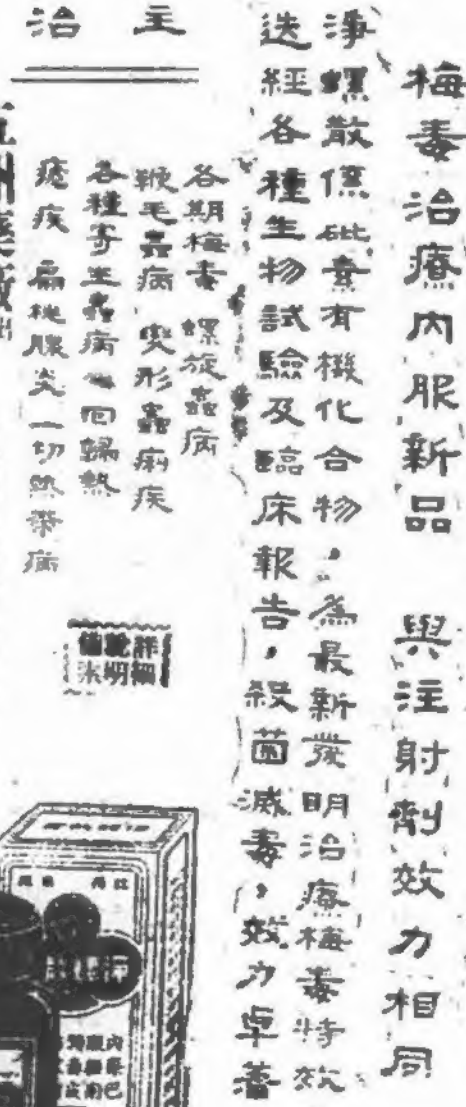 梅毒治療內服新品　與注射劑效力相同
淨螺散係砒素有機化合物，為最新發明治療梅毒特效
迭經各種生物試驗及臨床報告，殺菌滅毒，效力卓著
主治
各期梅毒　螺旋蟲病
鞭毛蟲病　變形蟲痢疾
各種寄生蟲病　回歸熱
瘧疾　扁桃腺炎　一切熱帶病
詳細
說明